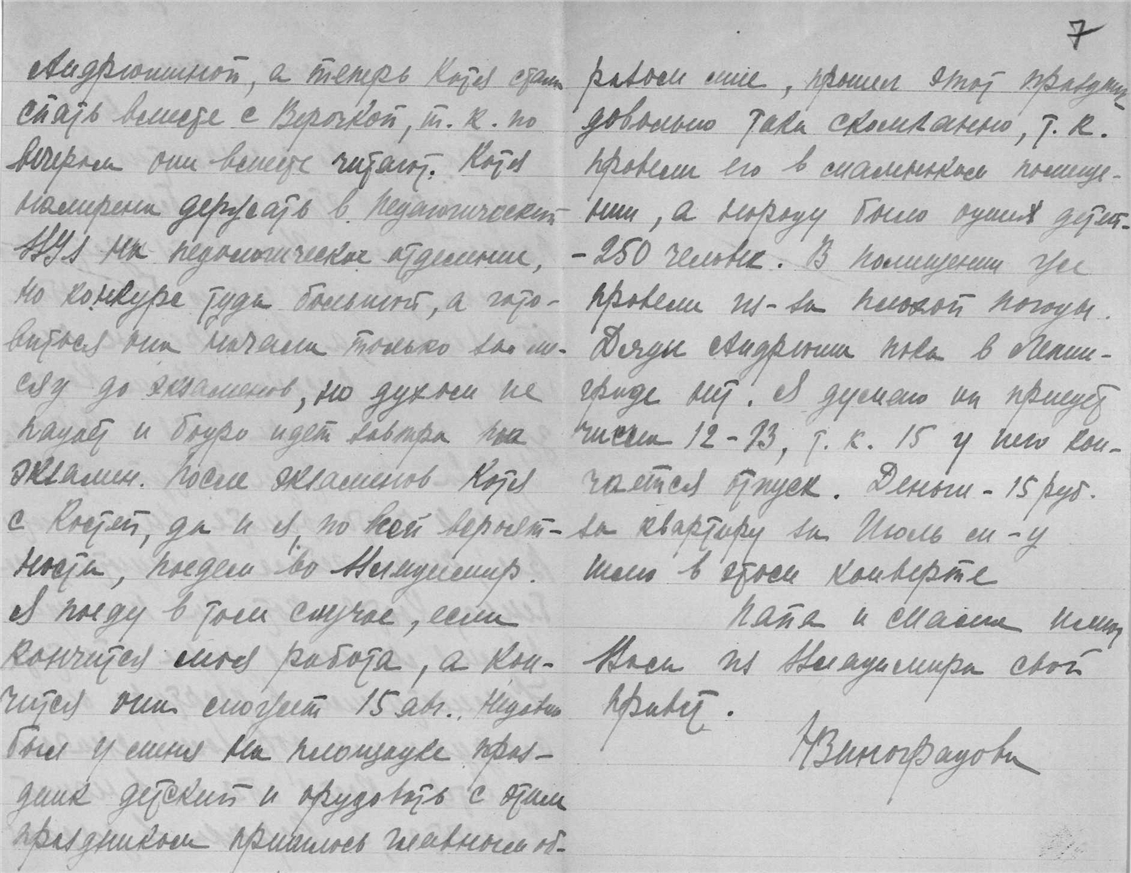 Андрюшиной, а теперь Котя стала
спать вместе с Верочкой, т. к. по
вечерам они вместе читают. Котя
намерена держать в педагогический
ВУЗ на педологическое отделение,
но конкурс туда большой, а гото-
виться она начала только за ме-
сяц до экзаменов, но духом не
падает и бодро идет завтра на
экзамен. После экзаменов Котя
с Костей, да и я, по всей вероят-
ности, поедем во Владимир.
Я поеду в том случае, если
кончится моя работа, а кон-
чится она может 15 авг.. Недавно
был у меня на площадке праз-
дник детский и орудовать с этим
праздником пришлось главным об-
7
разом мне, прошел этот праздник
довольно таки скомканно, т. к.
провели его в маленьком помеще-
нии, а народу было одних детей-
-250 человек. В помещении же
провели из-за плохой погоды.
Дяди Андрюши пока в Ленин-
граде нет. Я думаю он приедет
числа 12-13, т. к. 15 у него кон-
чается отпуск. Деньги - 15 руб.
за квартиру за Июль м-ц
шлю в этом конверте
Папа и мама шлют
Вам из Владимира свой
привет.
НВиноградова